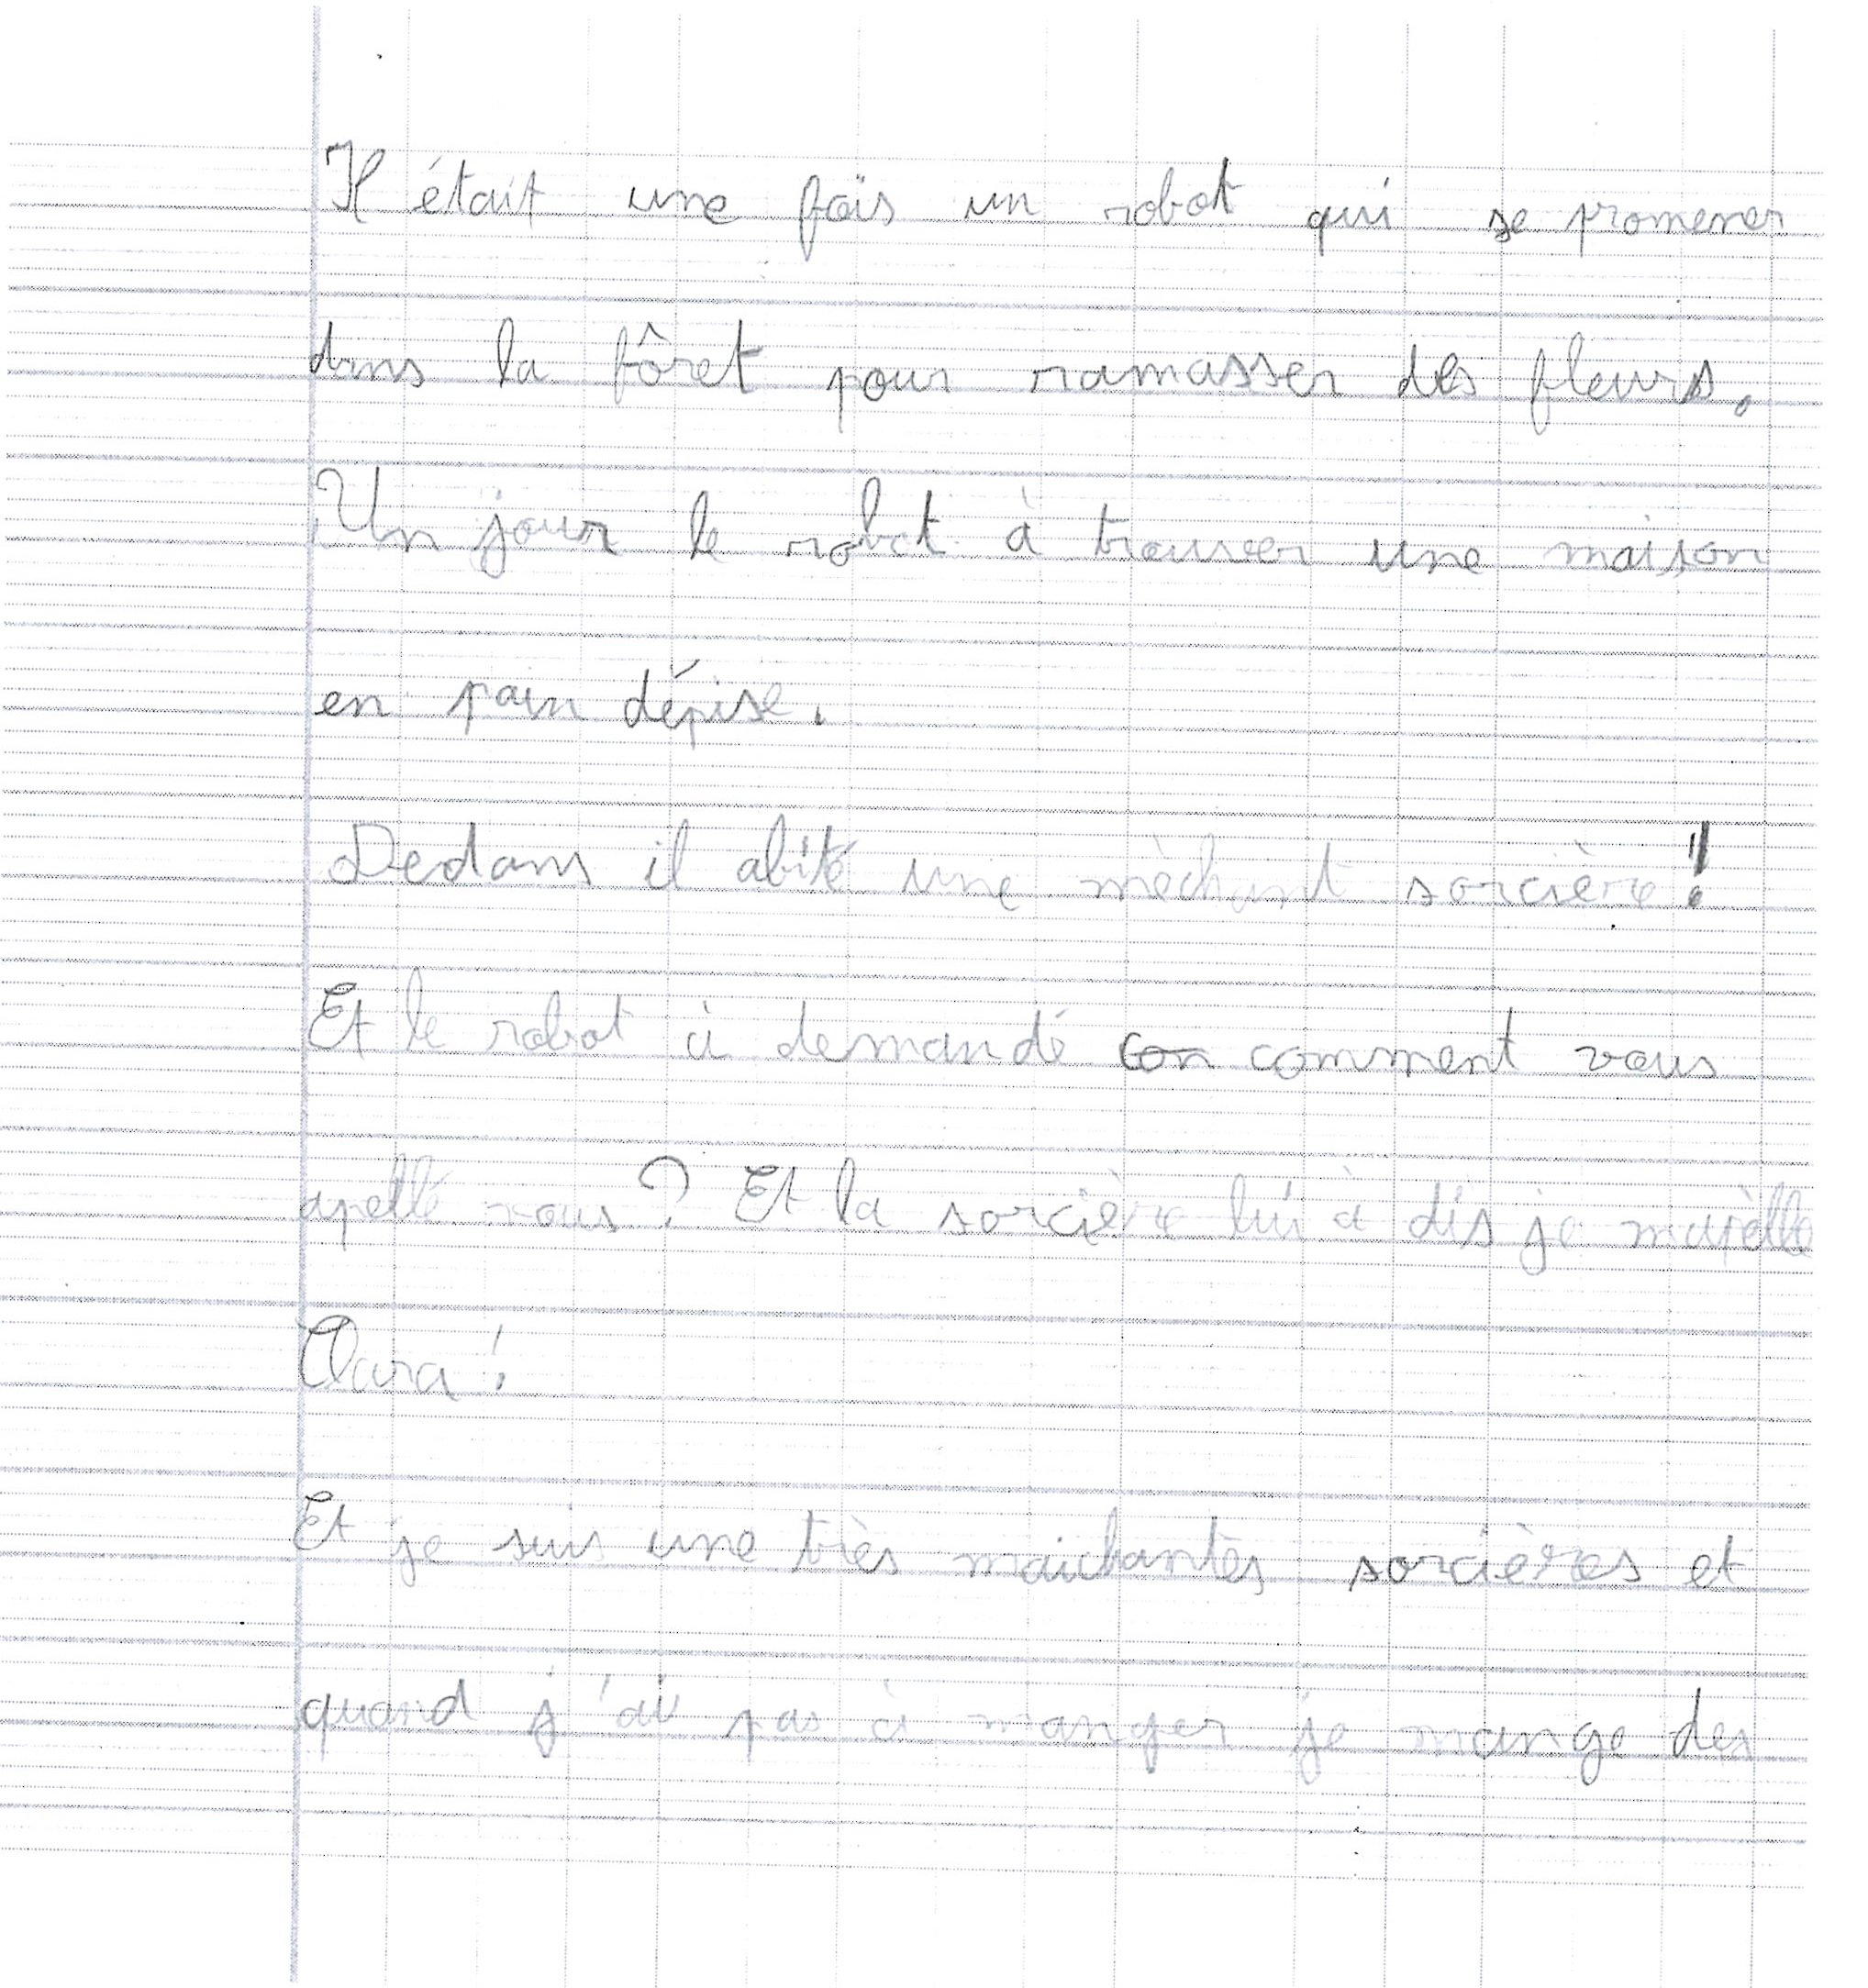 Il était une fois un robot qui se promener
dans la fôret pour ramasser des fleurs.
Un jour le robot à trouver une maison
en pain dépise.
Dedans il abité une mèchant sorcière !
Et le robot à demandé con comment vous
apellé vous ? Et la sorcière lui à dis je mapèlle
Clara !
Et je suis une très maichantes sorcières et
quand j'ai pas à manger je mange des